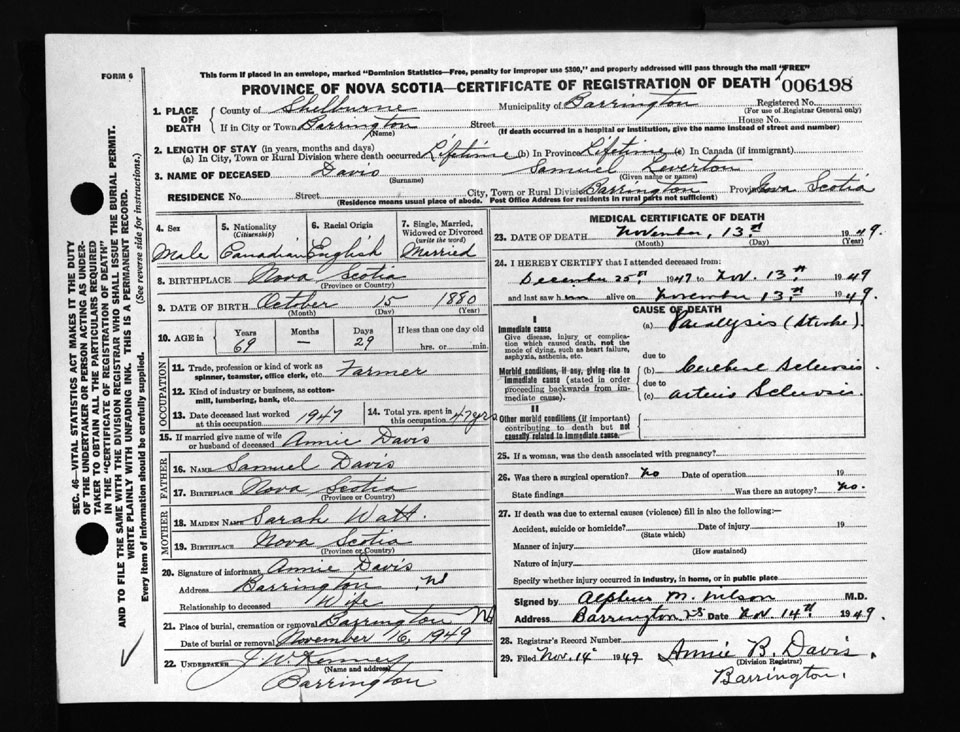 This form if placed in an envelope, marked "Dominion Statistics—Free, penalty for improper use $300," and properly addressed will pass through the mail "FREE"
FORM 6
PROVINCE OF NOVA SCOTIA—CERTIFICATE OF REGISTRATION OF DEATH 006198
1. PLACE OF DEATH
County of Shelburne Municipality of Barrington Registered No.
(For use of Registrar General only)
If in City or Town Barrington Street House No.
(Name) (If death occurred in a hospital or institution, give the name instead of street and number)
2. LENGTH OF STAY (in years, months and days)
(a) In City, Town or Rural Division where death occurred Lifetime (b) In Province Lifetime (c) In Canada (if immigrant)
3. NAME OF DECEASED Davis Samuel Leverton
(Surname) (Given name or names)
RESIDENCE No. Street City, Town or Rural Division Barrington Province Nova Scotia
(Residence means usual place of abode. Post Office Address for residents in rural parts not sufficient)
4. Sex Male
5. Nationality (Citizenship) Canadian
6. Racial Origin English
7. Single, Married, Widowed or Divorced (write the word) Married
8. BIRTHPLACE Nova Scotia
(Province or Country)
9. DATE OF BIRTH October 15 1880
(Month) (Day) (Year)
10. AGE in Years 69 Months — Days 29 If less than one day old
hrs. or min.
OCCUPATION
11. Trade, profession or kind of work as spinner, teamster, office clerk, etc. Farmer
12. Kind of industry or business, as cotton-mill, lumbering, bank, etc.
13. Date deceased last worked at this occupation 1947
14. Total yrs. spent in this occupation 47 yrs
15. If married give name of wife or husband of deceased Annie Davis
FATHER
16. NAME Samuel Davis
17. BIRTHPLACE Nova Scotia
(Province or Country)
MOTHER
18. MAIDEN NAME Sarah Watt.
19. BIRTHPLACE Nova Scotia
(Province or Country)
20. Signature of informant Annie Davis
Address Barrington NS
Relationship to deceased Wife
21. Place of burial, cremation or removal Barrington NS
Date of burial, or removal November 16, 1949
22. UNDERTAKER J. W. Kenney
(Name and address)
Barrington
MEDICAL CERTIFICATE OF DEATH
23. DATE OF DEATH November, 13th 1949.
(Month) (Day) (Year)
24. I HEREBY CERTIFY that I attended deceased from:
December 25th 1947 to Nov. 13th 1949
and last saw him alive on November 13th 1949.
CAUSE OF DEATH
I
Immediate cause
Give disease, injury or complication which caused death, not the mode of dying, such as heart failure, asphyxia, asthenia, etc.
(a) Paralysis (Stroke).
due to
Morbid conditions, if any, giving rise to immediate cause (stated in order proceeding backwards from immediate cause).
(b) Cerebral Sclerosis
due to
(c) arterio Sclerosis.
II
Other morbid conditions (if important) contributing to death but not causally related to immediate cause.
25. If a woman, was the death associated with pregnancy?
26. Was there a surgical operation? no Date of operation 19
State findings Was there an autopsy? no.
27. If death was due to external causes (violence) fill in also the following:
Accident, suicide or homicide? Date of injury 19
(State which)
Manner of injury
(How sustained)
Nature of injury
Specify whether injury occurred in industry, in home, or in public place
Signed by Alpheus M. Wilson M.D.
Address Barrington NS Date Nov. 14th 1949
28. Registrar's Record Number
29. Filed Nov. 14 1949 Annie B. Davis.
(Division Registrar)
Barrington.
SEC. 46—VITAL STATISTICS ACT MAKES IT THE DUTY
OF THE UNDERTAKER OR PERSON ACTING AS UNDER-
TAKER TO OBTAIN ALL THE PARTICULARS REQUIRED
IN THE "CERTIFICATE OF REGISTRATION OF DEATH"
AND TO FILE THE SAME WITH THE DIVISION REGISTRAR WHO SHALL ISSUE THE BURIAL PERMIT.
WRITE PLAINLY WITH UNFADING INK. THIS IS A PERMANENT RECORD.
Every item of information should be carefully supplied. (See reverse side for instructions.)